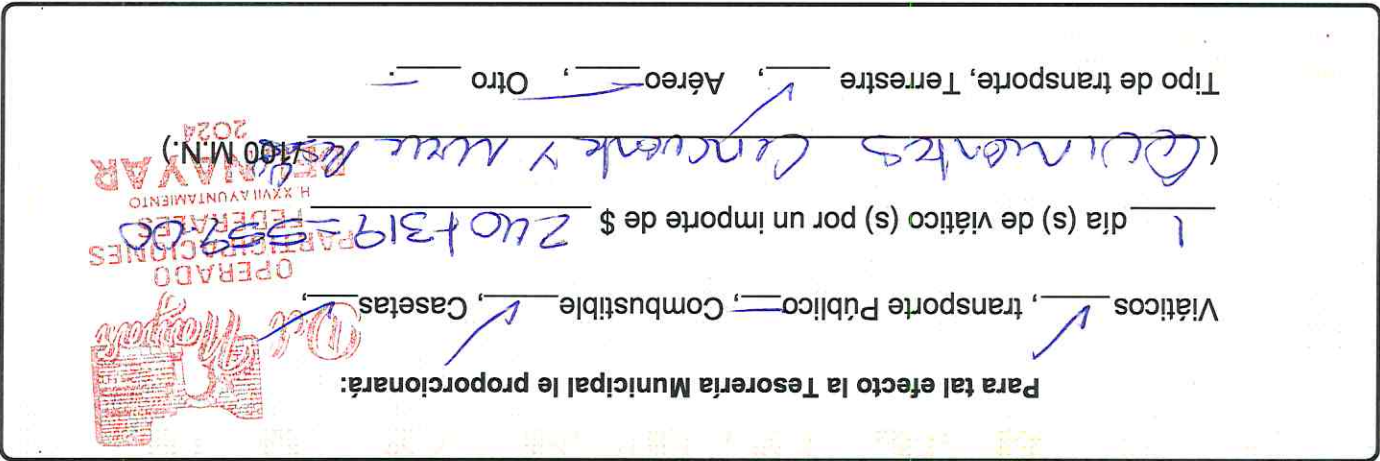 Para tal efecto la Tesorería Municipal le proporcionará:
Viáticos ✓, transporte Público —, Combustible ✓, Casetas ✓,
1 día (s) de viático (s) por un importe de $ 240+319=559.00
(Quinientos Cincuenta y Nueve Pesos /100 M.N.)
Tipo de transporte, Terrestre ✓, Aéreo —, Otro —.
Del Nayar
OPERADO
PARTICIPACIONES
FEDERALES
H. XXVII AYUNTAMIENTO
DEL NAYAR
2024